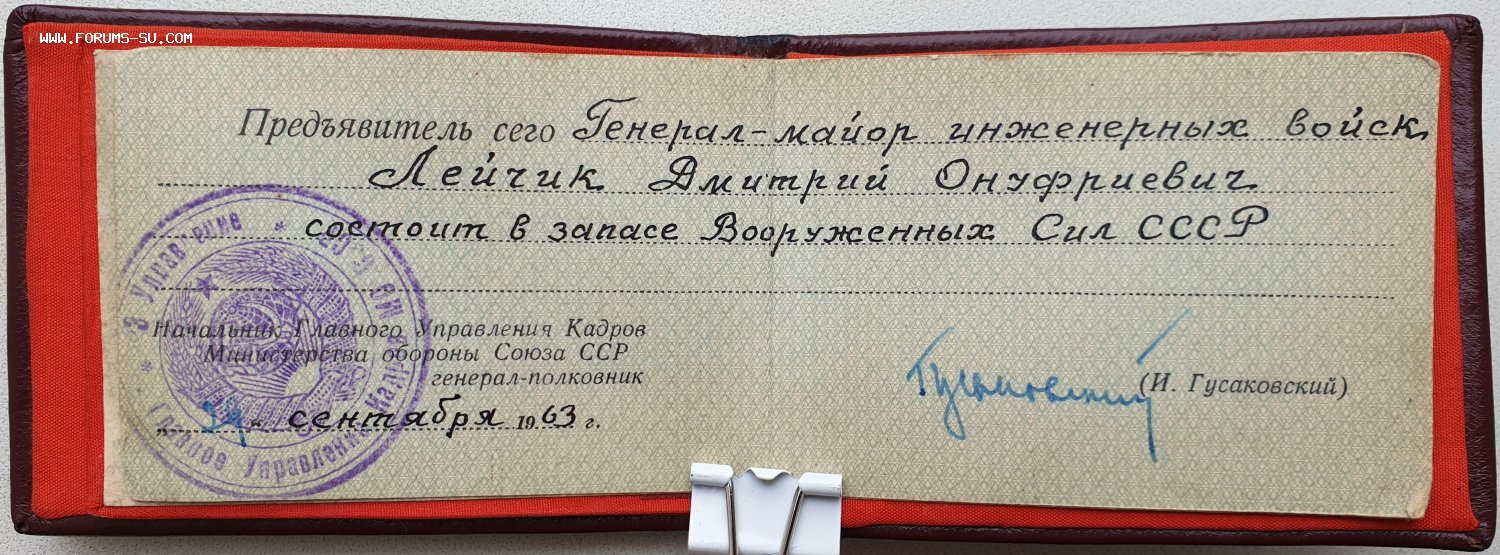 WWW.FORUMS-SU.COM
Предъявитель сего Генерал-майор инженерных войск
Лейчик Дмитрий Онуфриевич
состоит в запасе Вооруженных Сил СССР
Начальник Главного Управления Кадров
Министерства обороны Союза ССР
генерал-полковник
(И. Гусаковский)
„ “ сентября 1963 г.
Главное Управление